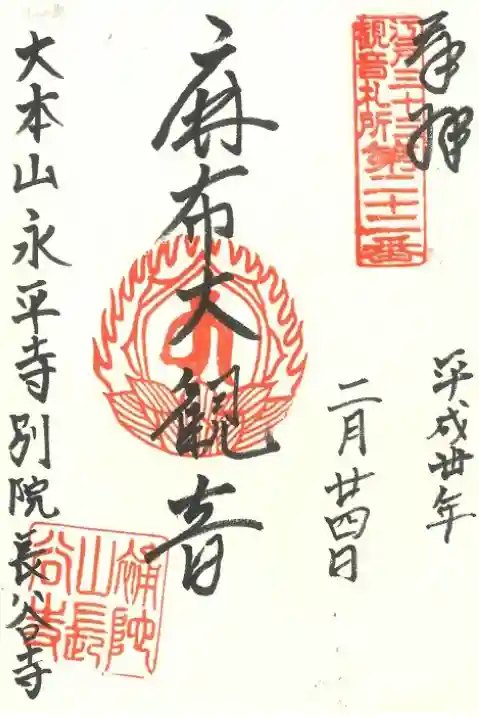 奉拝
江戸三十三
観音札所第二十二番
平成卅年
二月廿四日
麻布大観音
大本山永平寺別院長谷寺
補陀
山長
谷寺